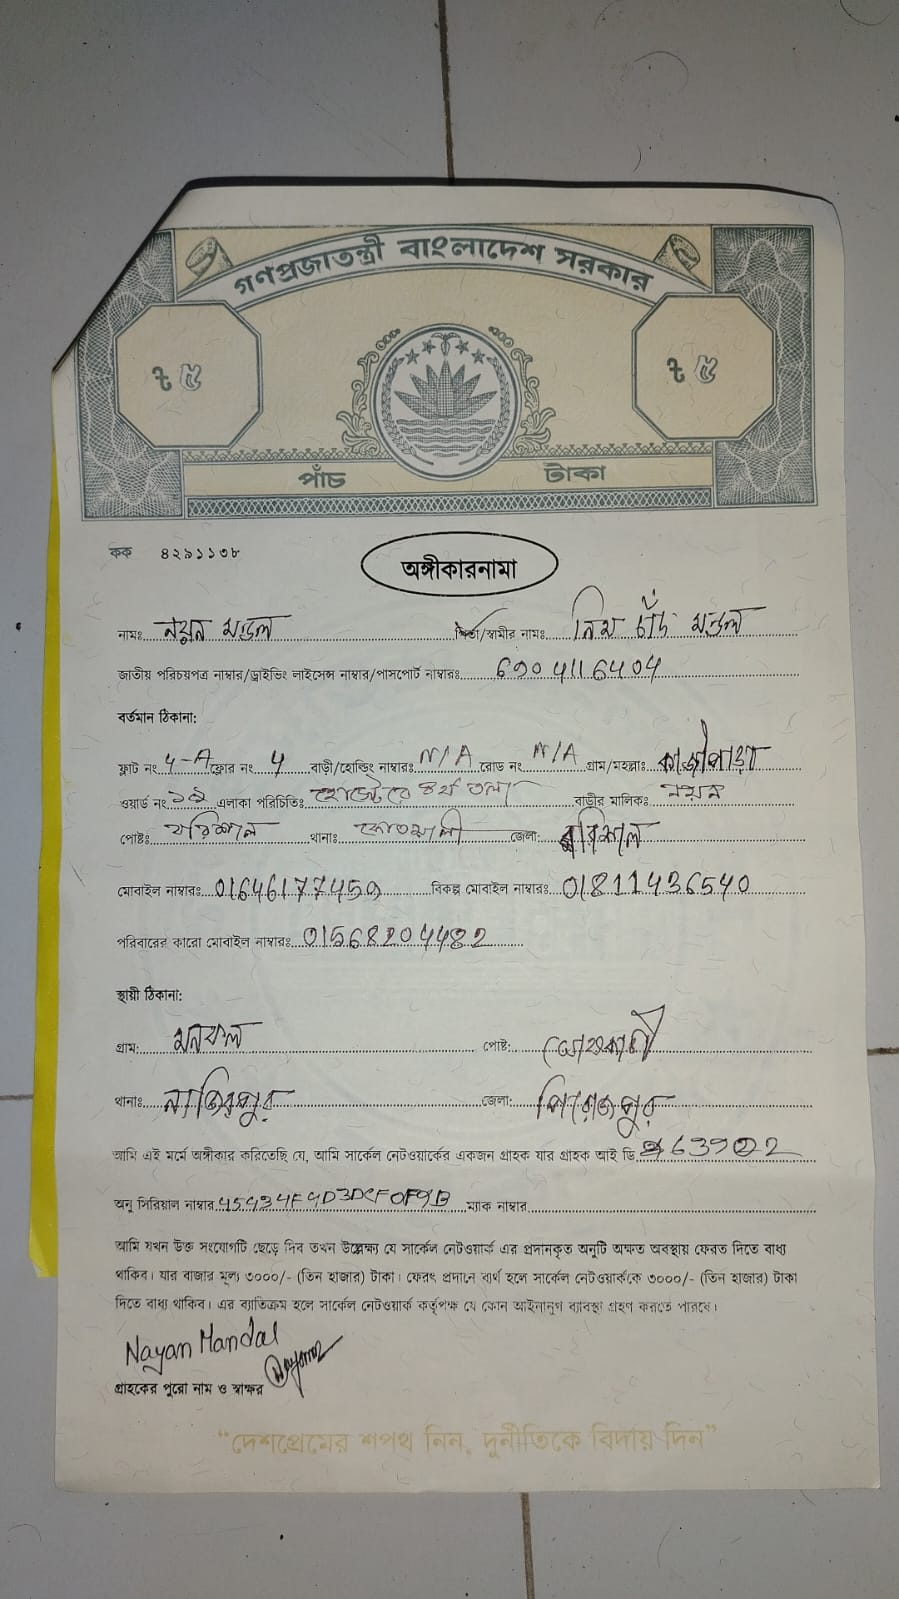 গণপ্রজাতন্ত্রী বাংলাদেশ সরকার
৳ ৫ ৳ ৫
পাঁচ টাকা
কক ৪২৯১১৩৮
অঙ্গীকারনামা
নামঃ নয়ন মন্ডল পিতা/স্বামীর নামঃ নিম চাঁদ মন্ডল
জাতীয় পরিচয়পত্র নাম্বার/ড্রাইভিং লাইসেন্স নাম্বার/পাসপোর্ট নাম্বারঃ 6904116404
বর্তমান ঠিকানা:
ফ্লাট নং 4-A ফ্লোর নং 4 বাড়ী/হোল্ডিং নাম্বারঃ N/A রোড নং N/A গ্রাম/মহল্লাঃ কাজীপাড়া
ওয়ার্ড নং ১৯ এলাকা পরিচিতিঃ ৪র্থ তলা বাড়ীর মালিকঃ নয়ন
পোষ্টঃ বরিশাল থানাঃ কোতয়ালী জেলা: বরিশাল
মোবাইল নাম্বারঃ 01646177459 বিকল্প মোবাইল নাম্বারঃ 01811436540
পরিবারের কারো মোবাইল নাম্বারঃ 01568204482
স্থায়ী ঠিকানা:
গ্রাম: পোষ্ট:
থানাঃ নাজিরপুর জেলা: পিরোজপুর
আমি এই মর্মে অঙ্গীকার করিতেছি যে, আমি সার্কেল নেটওয়ার্কের একজন গ্রাহক যার গ্রাহক আই ডি
অনু সিরিয়াল নাম্বার ম্যাক নাম্বার
আমি যখন উক্ত সংযোগটি ছেড়ে দিব তখন উল্লেক্ষ্য যে সার্কেল নেটওয়ার্ক এর প্রদানকৃত অনুটি অক্ষত অবস্থায় ফেরত দিতে বাধ্য
থাকিব। যার বাজার মূল্য ৩০০০/- (তিন হাজার) টাকা। ফেরৎ প্রদানে ব্যর্থ হলে সার্কেল নেটওয়ার্ককে ৩০০০/- (তিন হাজার) টাকা
দিতে বাধ্য থাকিব। এর ব্যাতিক্রম হলে সার্কেল নেটওয়ার্ক কর্তৃপক্ষ যে কোন আইনানুগ ব্যাবস্থা গ্রহণ করতে পারবে।
Nayan Mandal
গ্রাহকের পুরো নাম ও স্বাক্ষর
“দেশপ্রেমের শপথ নিন, দুর্নীতিকে বিদায় দিন”